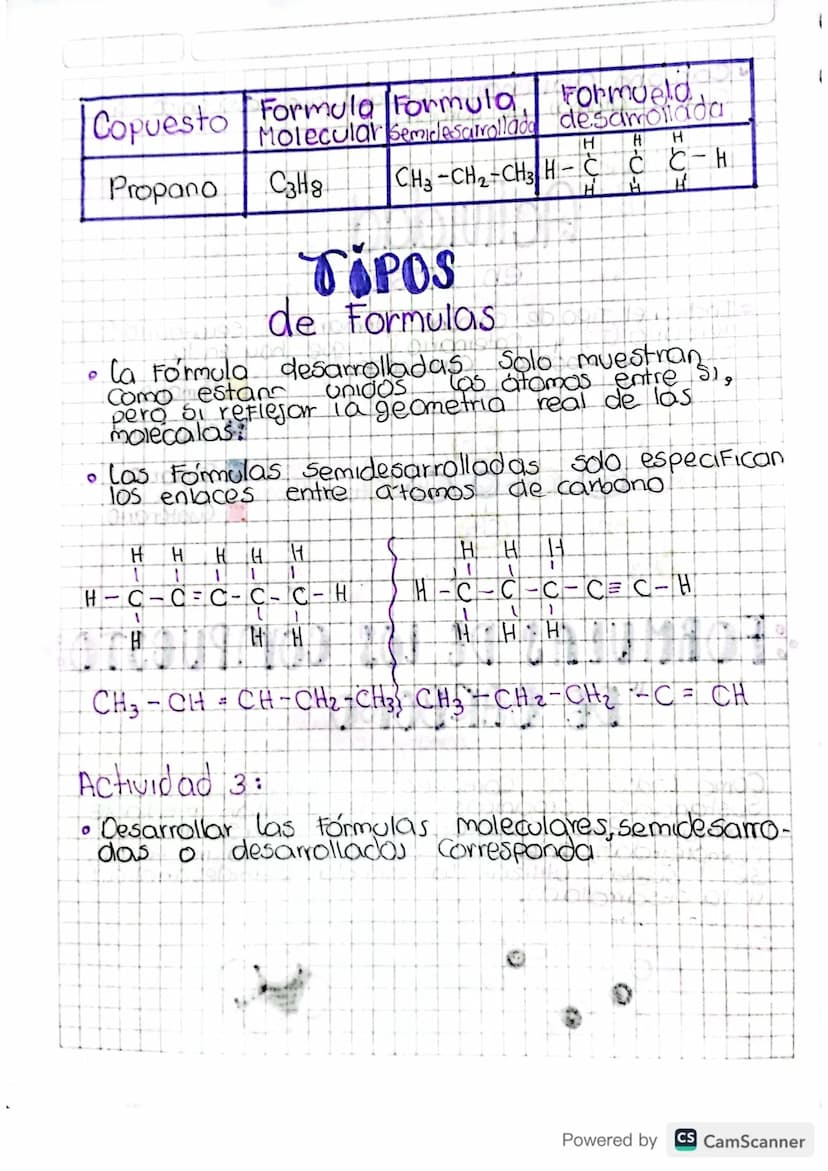 Copuesto Formula Molecular Formula Semidesarrollada Formuela desarrollada
Propano C3H8 CH3-CH2-CH3
H H H
H - C C C - H
H H H
TIPOS
de Formulas
• La Fórmula desarrolladas Solo muestran
como estann unidos las átomos entre si,
pero si reflejar la geometria real de las
molecalas:
• Las Fórmulas semidesarrolladas solo especifican
los enlaces entre átomos de carbono
H H H H H
H - C - C = C - C - C - H
H H H
H H H
H - C - C - C - C ≡ C - H
H H H
CH3 - CH = CH - CH2 - CH3 CH3 - CH2 - CH2 - C = CH
Actividad 3:
• Desarrollar las fórmulas moleculares, semidesarro-
das o desarrollados corresponda
Powered by CS CamScanner